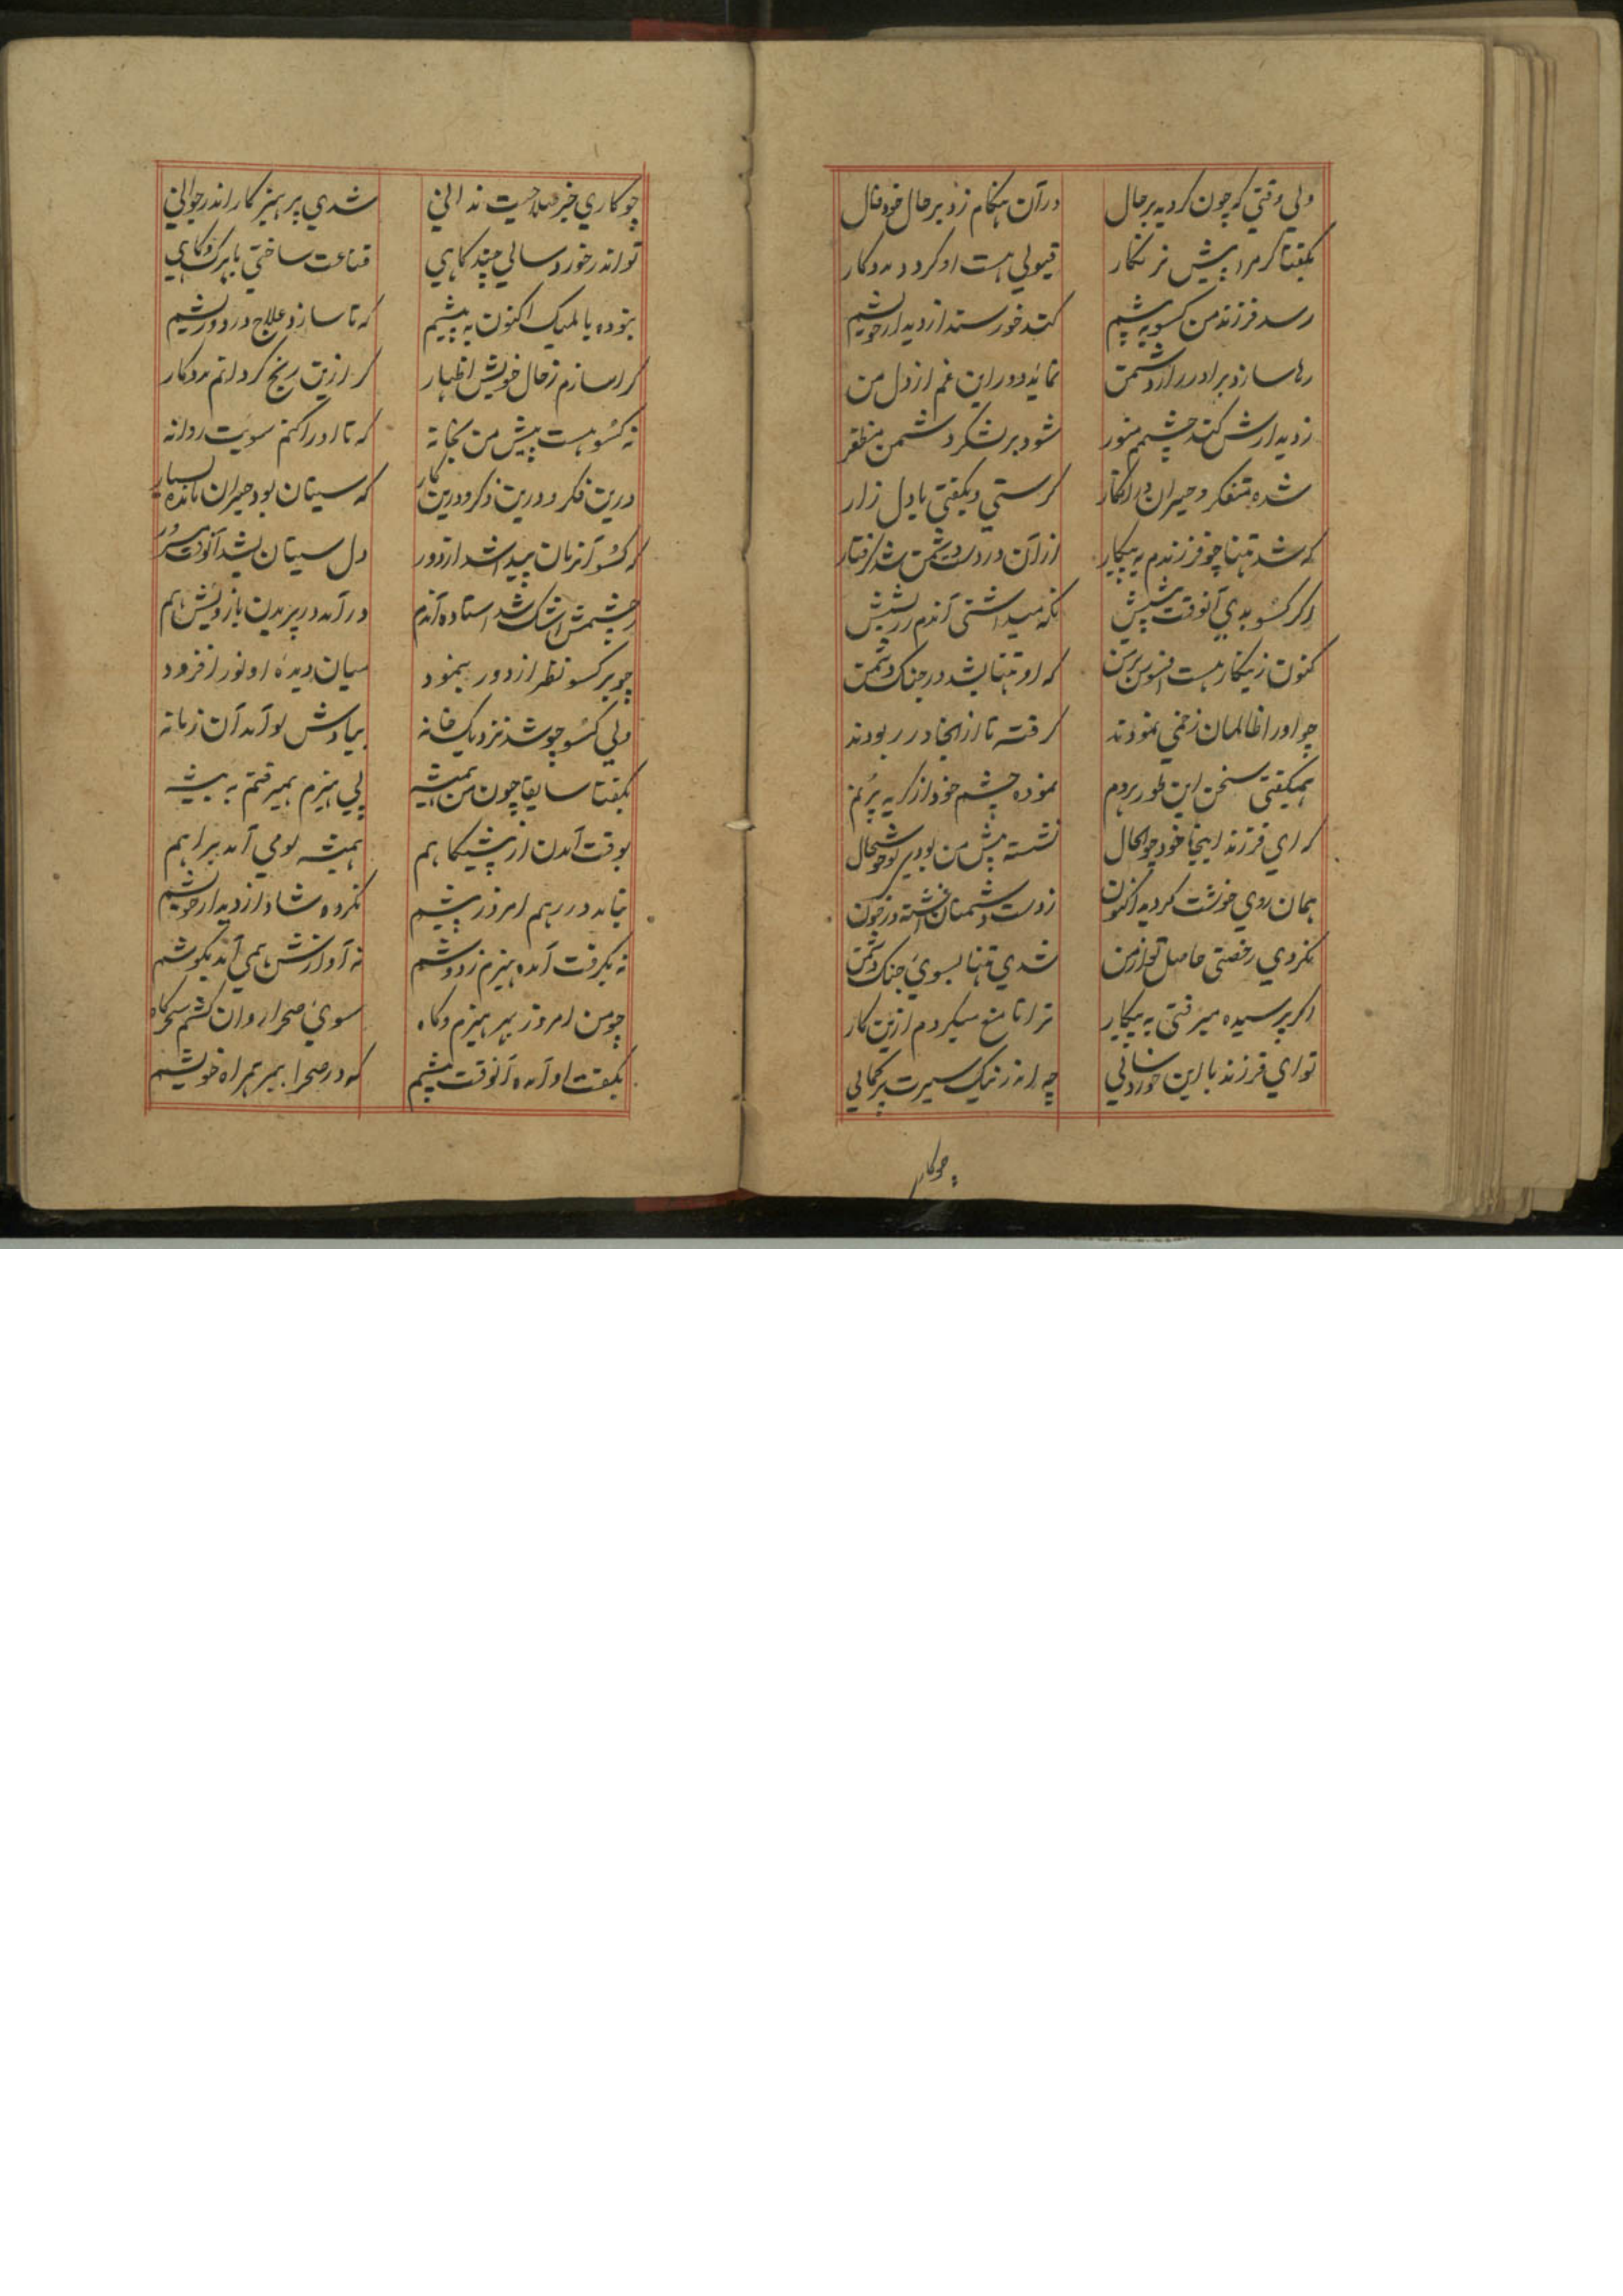 ولی وقتی که چون کردید برحال در آن هنگام زد بر حال خود فال
بگفتا کر مرا پیش نر نگار قبولی هست او کرد مددکار
رسد فرزند من کسو به پیشم کند خورسند از دیدار خویشم
رها سازد برادر را ز دشمن نماید دور این غم از دل من
ز دیدارش کند چشمم منور شود بر لشکر دشمن مظفر
شده متفکر و حیران در انکار کرستی و بگفتی با دل زار
که شد تنها چو فرزندم به پیکار از آن در دست دشمن شد گرفتار
اگر کسو بدی آنوقت پیشش نگه میداشتی آندم
کنون زینکار هست افسوس بر من که او تنها بشد در جنگ دشمن
چو او را ظالمان زخمی نمودند گرفته تا از اینجا در ربودند
همیگفتی سخن این طور هردم نموده چشم خود از گریه پر نم
که ای فرزند اینجا خود چو الحال نشسته پیش من بودی تو خوشحال
همان روی خوشت کردید اکنون ز دست دشمنان آغشته در خون
نکردی رخصتی حاصل تو از من شدی تنها بسوی جنگ دشمن
اگر پرسیده میرفتی به پیکار ترا تا منع میکردم ازین کار
تو ای فرزند با این خوردسالی چه اندر نیک سیرت پر کمالی
چوکار
چو کاری خیر صلاحیت ندانی شدی پرهیزکار اندر جوانی
تو اندر خورد سالی چند گاهی قناعت ساختی با برگ و کاهی
نبوده بالمیک اکنون به پیشم که تا سازد علاج درد و ریشم
کرا سازم ز حال خویش اظهار کزین رنج گردانم مددکار
نه کسو هست پیش من بخانه که تا او را کنم سویت روانه
درین فکر و درین ذکر و درین کار که سیتان بود حیران مانده بسیار
که کسو آنزمان پیدا شد از دور دل سیتان بشد آنوقت مسرور
ز چشمش اشک شد استاده آندم در آمد در پریدن بازویش هم
چو بر کسو نظر از دور بنمود میان دیدهٔ او نور افزود
ولی کسو چو شد نزدیک خانه بیادش لو آمد آن زمانه
بگفتا سابقا چون من همیشه پی هیزم همیرفتم به بیشه
بوقت آمدن از پیشگاهم همیشه لو می آمد براهم
نیامد در رهم امروز پیشم نکرده شاد از دیدار خویشم
نه بگرفت آمده هیزم ز دوشم نه آوازش همی آید بگوشم
چو من امروز بهر هیزم و کاه سوی صحرا روان گشتم سحرگاه
بگفت او آمده آنوقت پیشم که در صحرا ببر همراه خویشم